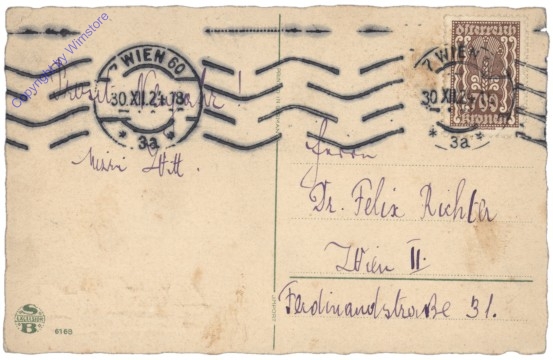 Copyright by Wimstore
7 WIEN 60
30.XII.24.78
* 3a *
österreich
kronen
7 WIEN
30 XII.24
* 3a *
Prosit Neujahr!
Herrn
Dr. Felix Richter
Wien II.
Ferdinandstraße 31.
S
B
6168